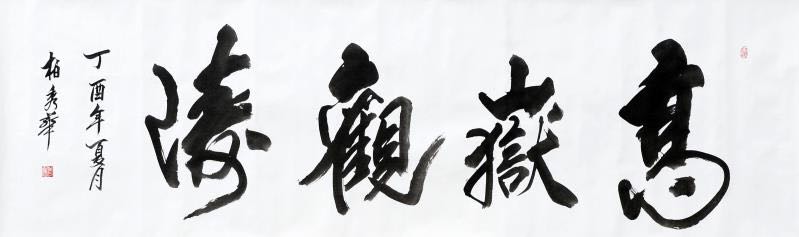 高嶽觀陵
丁酉年夏月
柏秀華